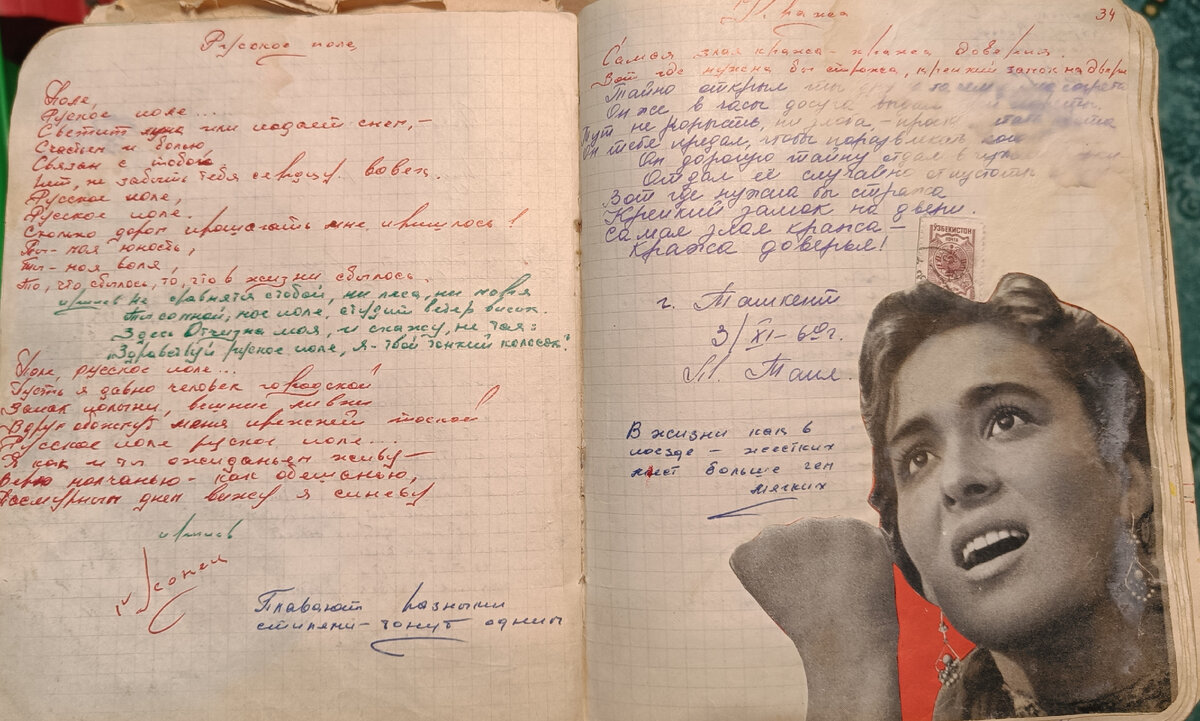 Русское поле
Поле,
Руское поле...
Светит луна или падает снег,-
Счастьем и болью
Связан с тобою.
Нет, не забыть тебя сердцу вовек.
Русское поле,
Русское поле.
Сколько дорог прошагать мне пришлось!
Ты- моя юность,
Ты- моя воля,
То, что сбылось, то, что в жизни сбылось.
припев Не сравнятся с тобой, ни леса, ни моря
Ты со мной, мое поле, студит ветер висок.
Здесь Отчизна моя, и скажу, не тая:
Здравствуй руское поле, я- твой тонкий колосок.
Поле, русское поле...
Пусть я давно человек городской!
Запах полыни, вешние ливни
Вдруг обожгут меня прежней тоской
Русское поле русское поле...
Я как и ты ожиданьем живу-
Верю молчанью- как обещанью,
Пасмурным днем вижу я синеву
припев
Конец
Плавают разными
стилями- тонут одним
34
Кража
Самая злая кража- кража доверия.
Вот где нужна бы стража, крепкий замок на двери
Тайно открыл ты другу
Он же в часы досуга
Тут не корысть, ни злоба,-
Он тебя предал, чтобы поразвлечь
Он дорогую тайну отдал в
Отдал её случайно
Вот где нужна бы стража
Крепкий замок на двери.
Самая злая кража-
Кража доверья!
ЎЗБЕКИСТОН
ПОЧТА
г. Ташкент
3/XI-60г.
В жизни как в
поезде- жестких
мест больше чем
мягких